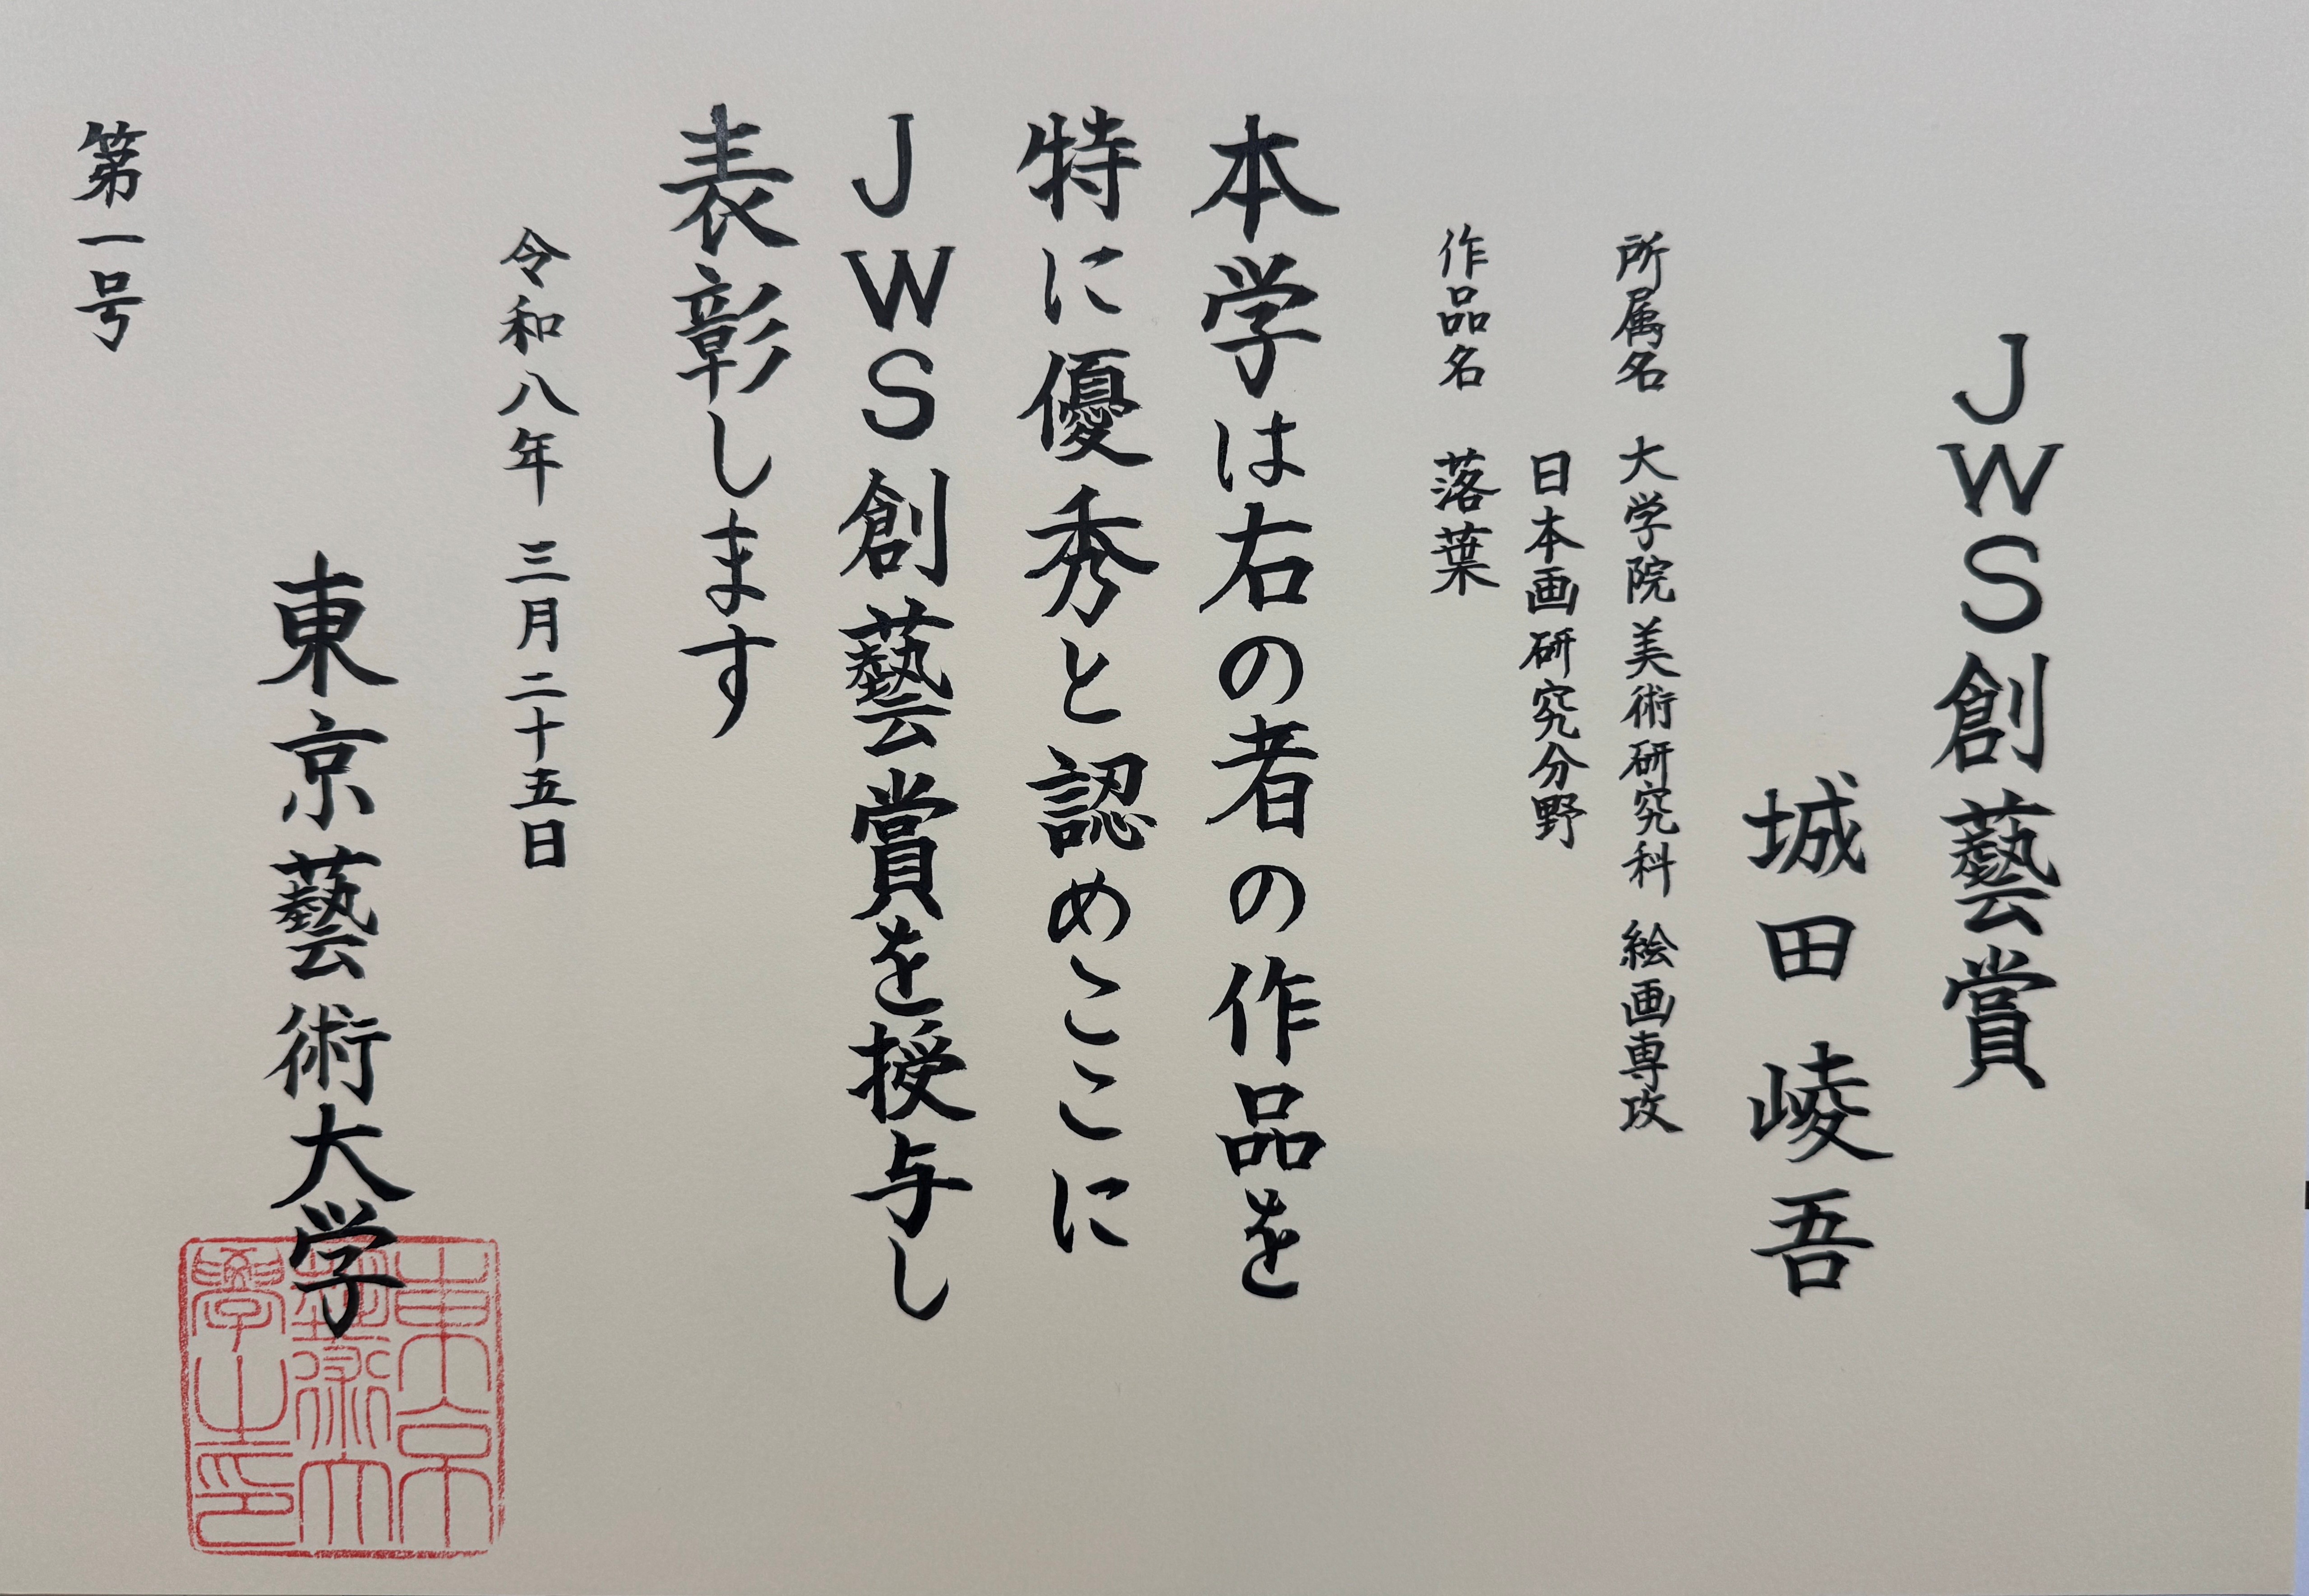 JWS創藝賞
城田崚吾
所属名 大学院美術研究科 絵画専攻
日本画研究分野
作品名 落葉
本学は右の者の作品を
特に優秀と認めここに
JWS創藝賞を授与し
表彰します
令和八年三月二十五日
東京藝術大学
東京
藝術大
學之印
第一号